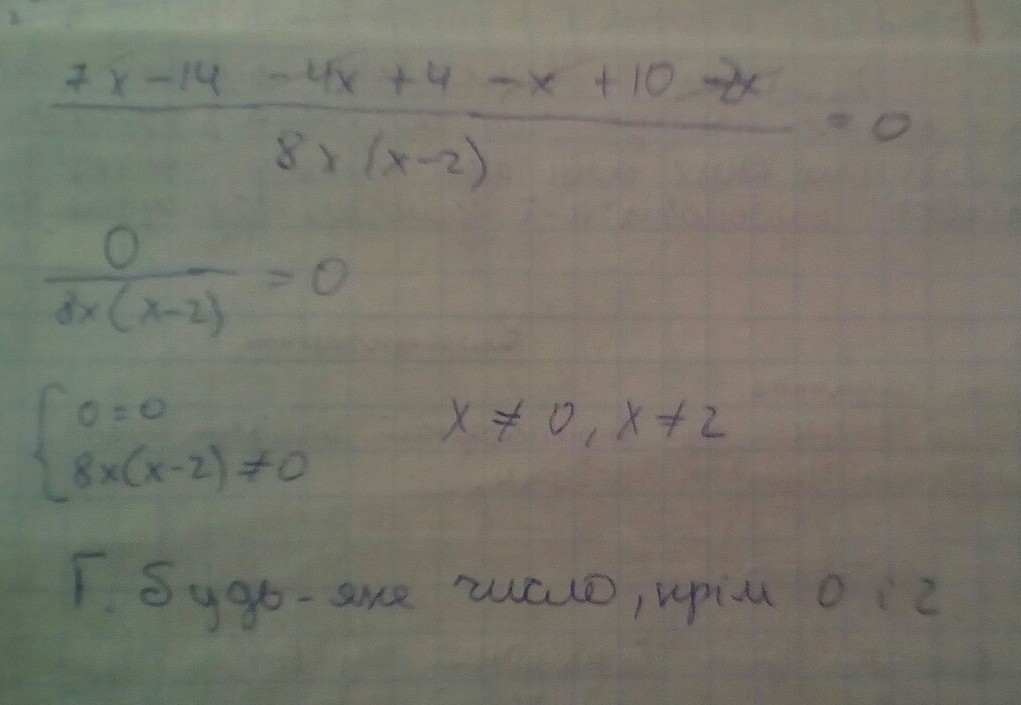 7x-14 -4x+4 -x +10 -2x
8x(x-2)
= 0
0
8x(x-2)
= 0
{ 0=0
8x(x-2)≠0
x ≠ 0, x ≠ 2
Г. будь-яке число, крім 0 і 2